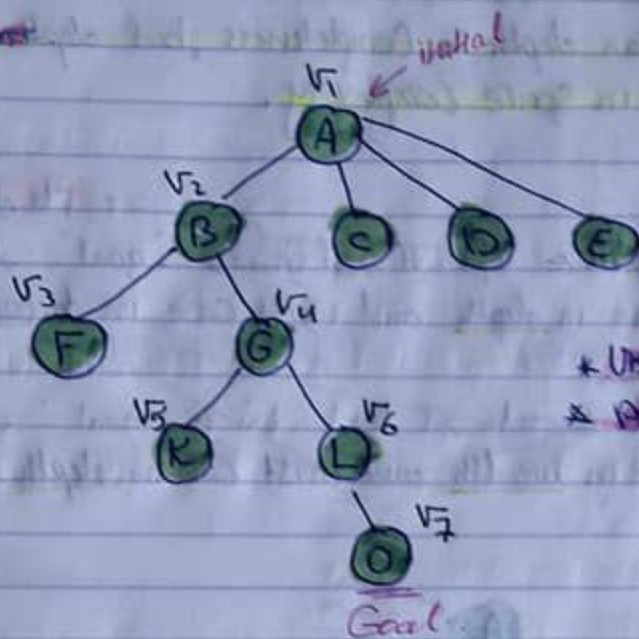 initial
V1
A
V2
B C D E
V3 V4
F G
V5 V6
K L
V7
O
Goal